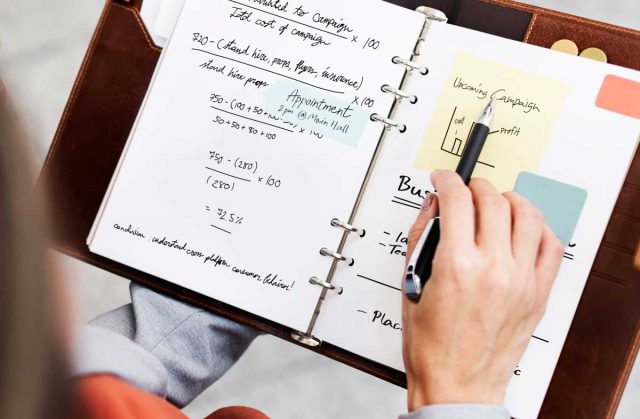 ted to Campaign
Total cost of campaign
× 100
720 - (stand hire, props, flyers, insurance)
stand hire props
× 100
Appointment
2 pm @ Main Hall
750 - (100 + 50
× 100
50 + 50 + 80 + 100
750 - (280)
(280)
× 100
= 72.5%
conclusion : understand cross-platform consumer behavior!
Upcoming Campaign
cost
profit
Bus
-
- Te
- Plac